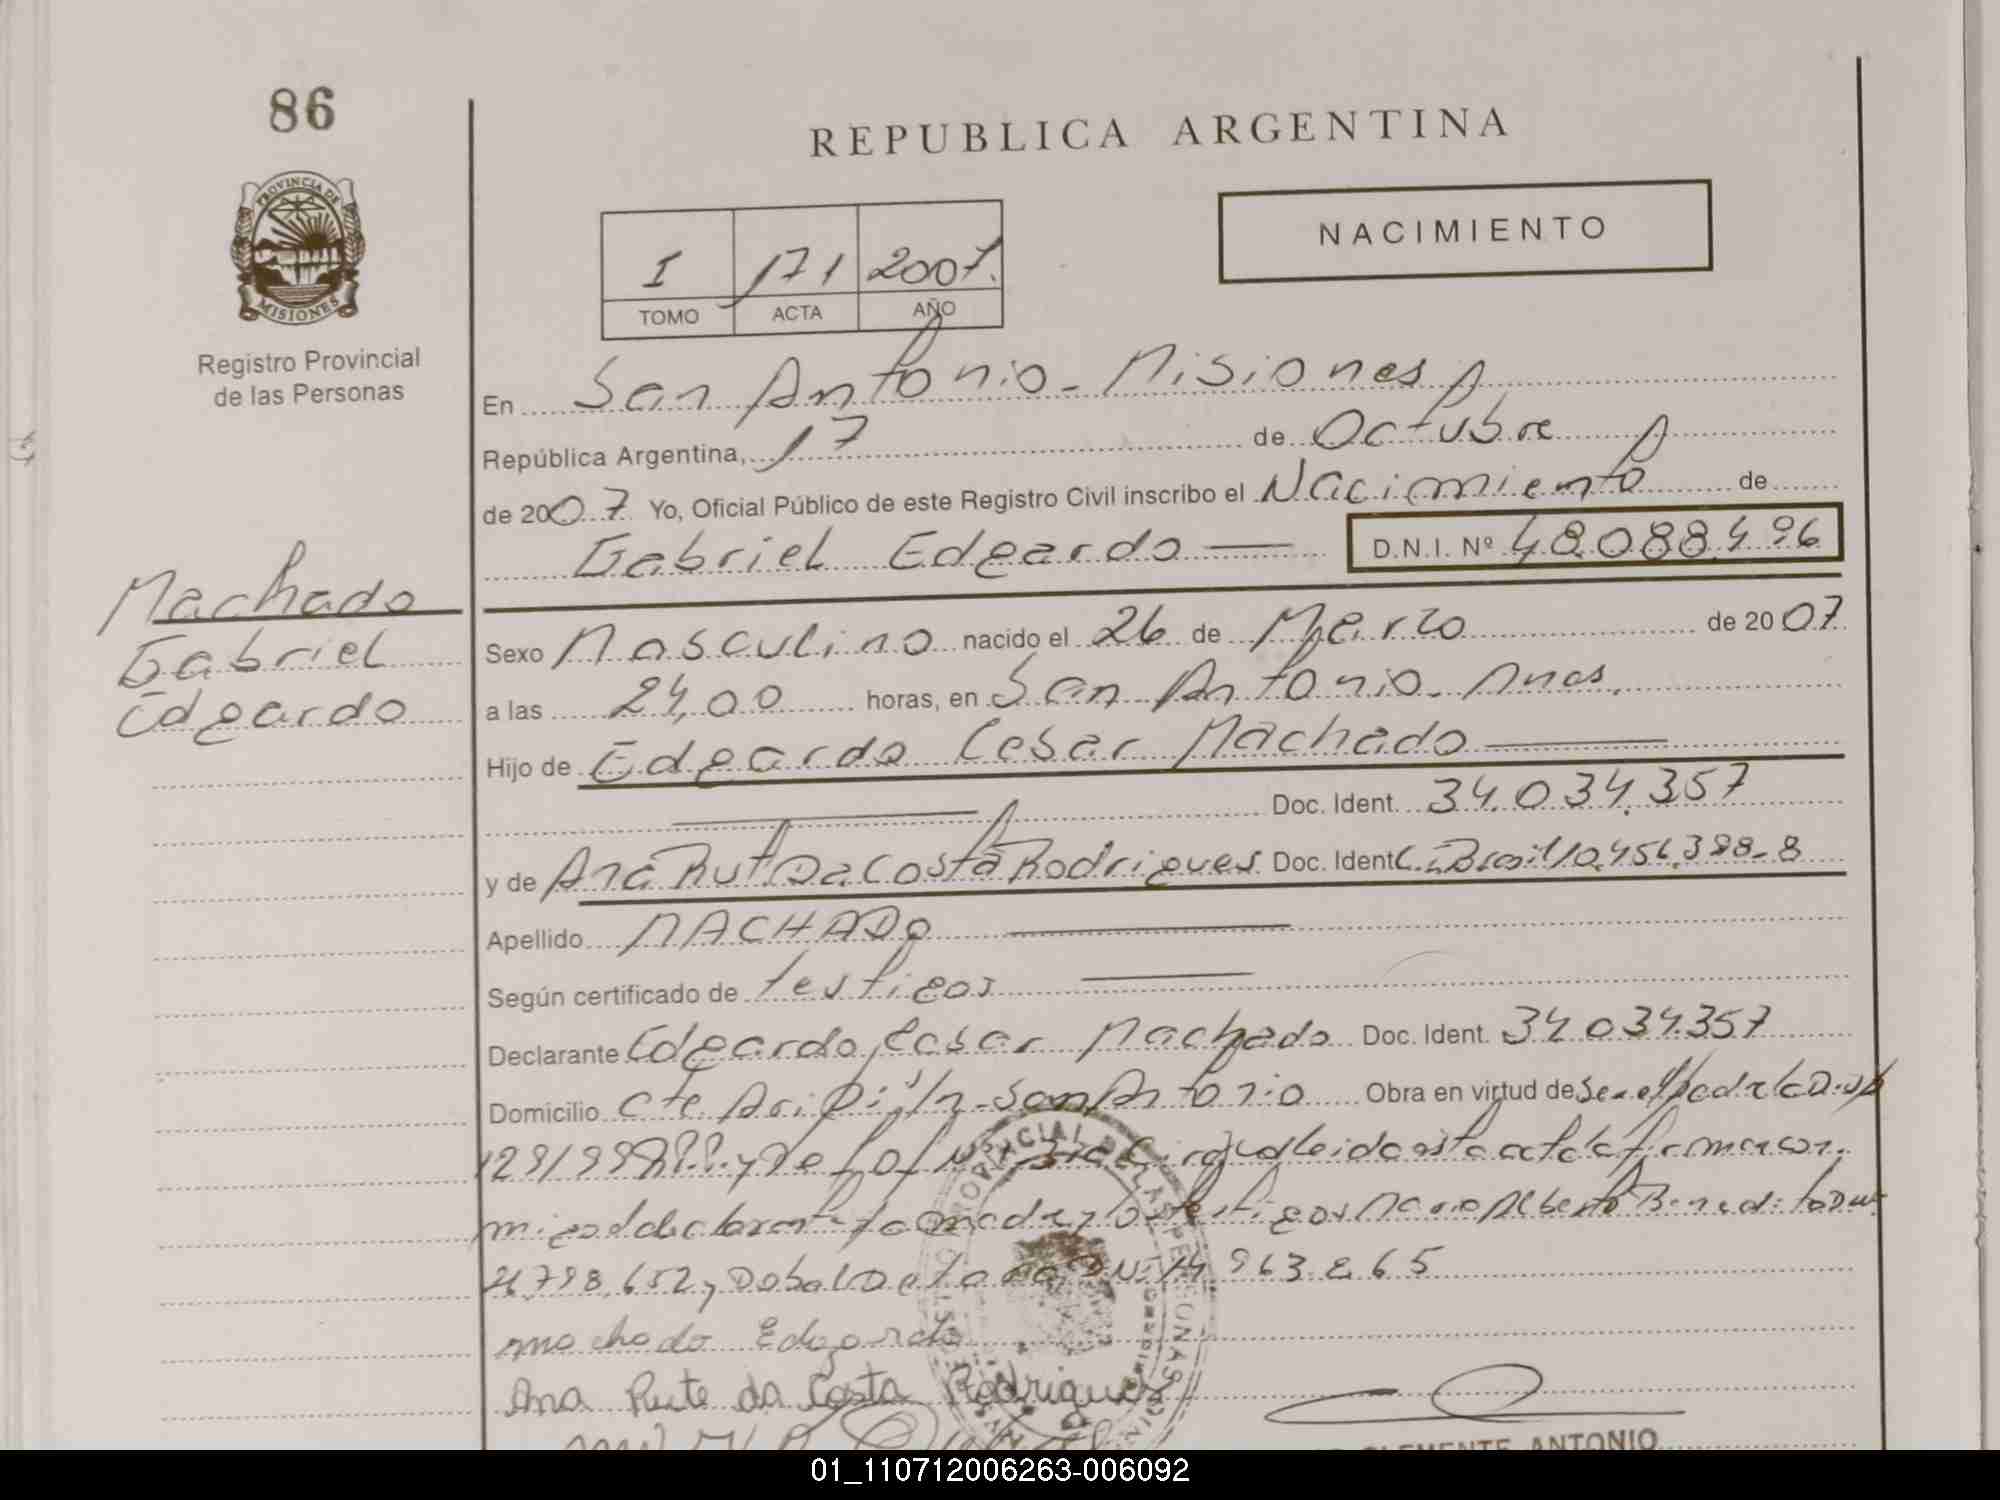 86
REPUBLICA ARGENTINA
NACIMIENTO
PROVINCIA DE
MISIONES
Registro Provincial
de las Personas
I 171 2007.
TOMO ACTA AÑO
En San Antonio - Misiones
República Argentina, 17 de Octubre
de 2007 Yo, Oficial Público de este Registro Civil inscribo el Nacimiento de
Gabriel Edgardo — D.N.I. Nº 48.088.496
Machado
Gabriel
Edgardo
Sexo Masculino nacido el 26 de Marzo de 2007
a las 24,00 horas, en San Antonio - Mnes.
Hijo de Edgardo Cesar Machado —
— Doc. Ident. 34.034.357
y de Ana Rut Da Costa Rodrigues Doc. Ident. C.I. Brasil 10.456.388-8
Apellido MACHADO —
Según certificado de testigos —
Declarante Edgardo Cesar Machado Doc. Ident. 34.034.357
Domicilio Cte Aripi s/n - San Antonio Obra en virtud de
129/99 leida esta acta la firman con
migo el declarante la madre y los testigos Mario Alberto Benedito
y DNI 14.963.865
machado Edgardo
Ana Rute da Costa Rodrigues
CLEMENTE ANTONIO
01_110712006263-006092